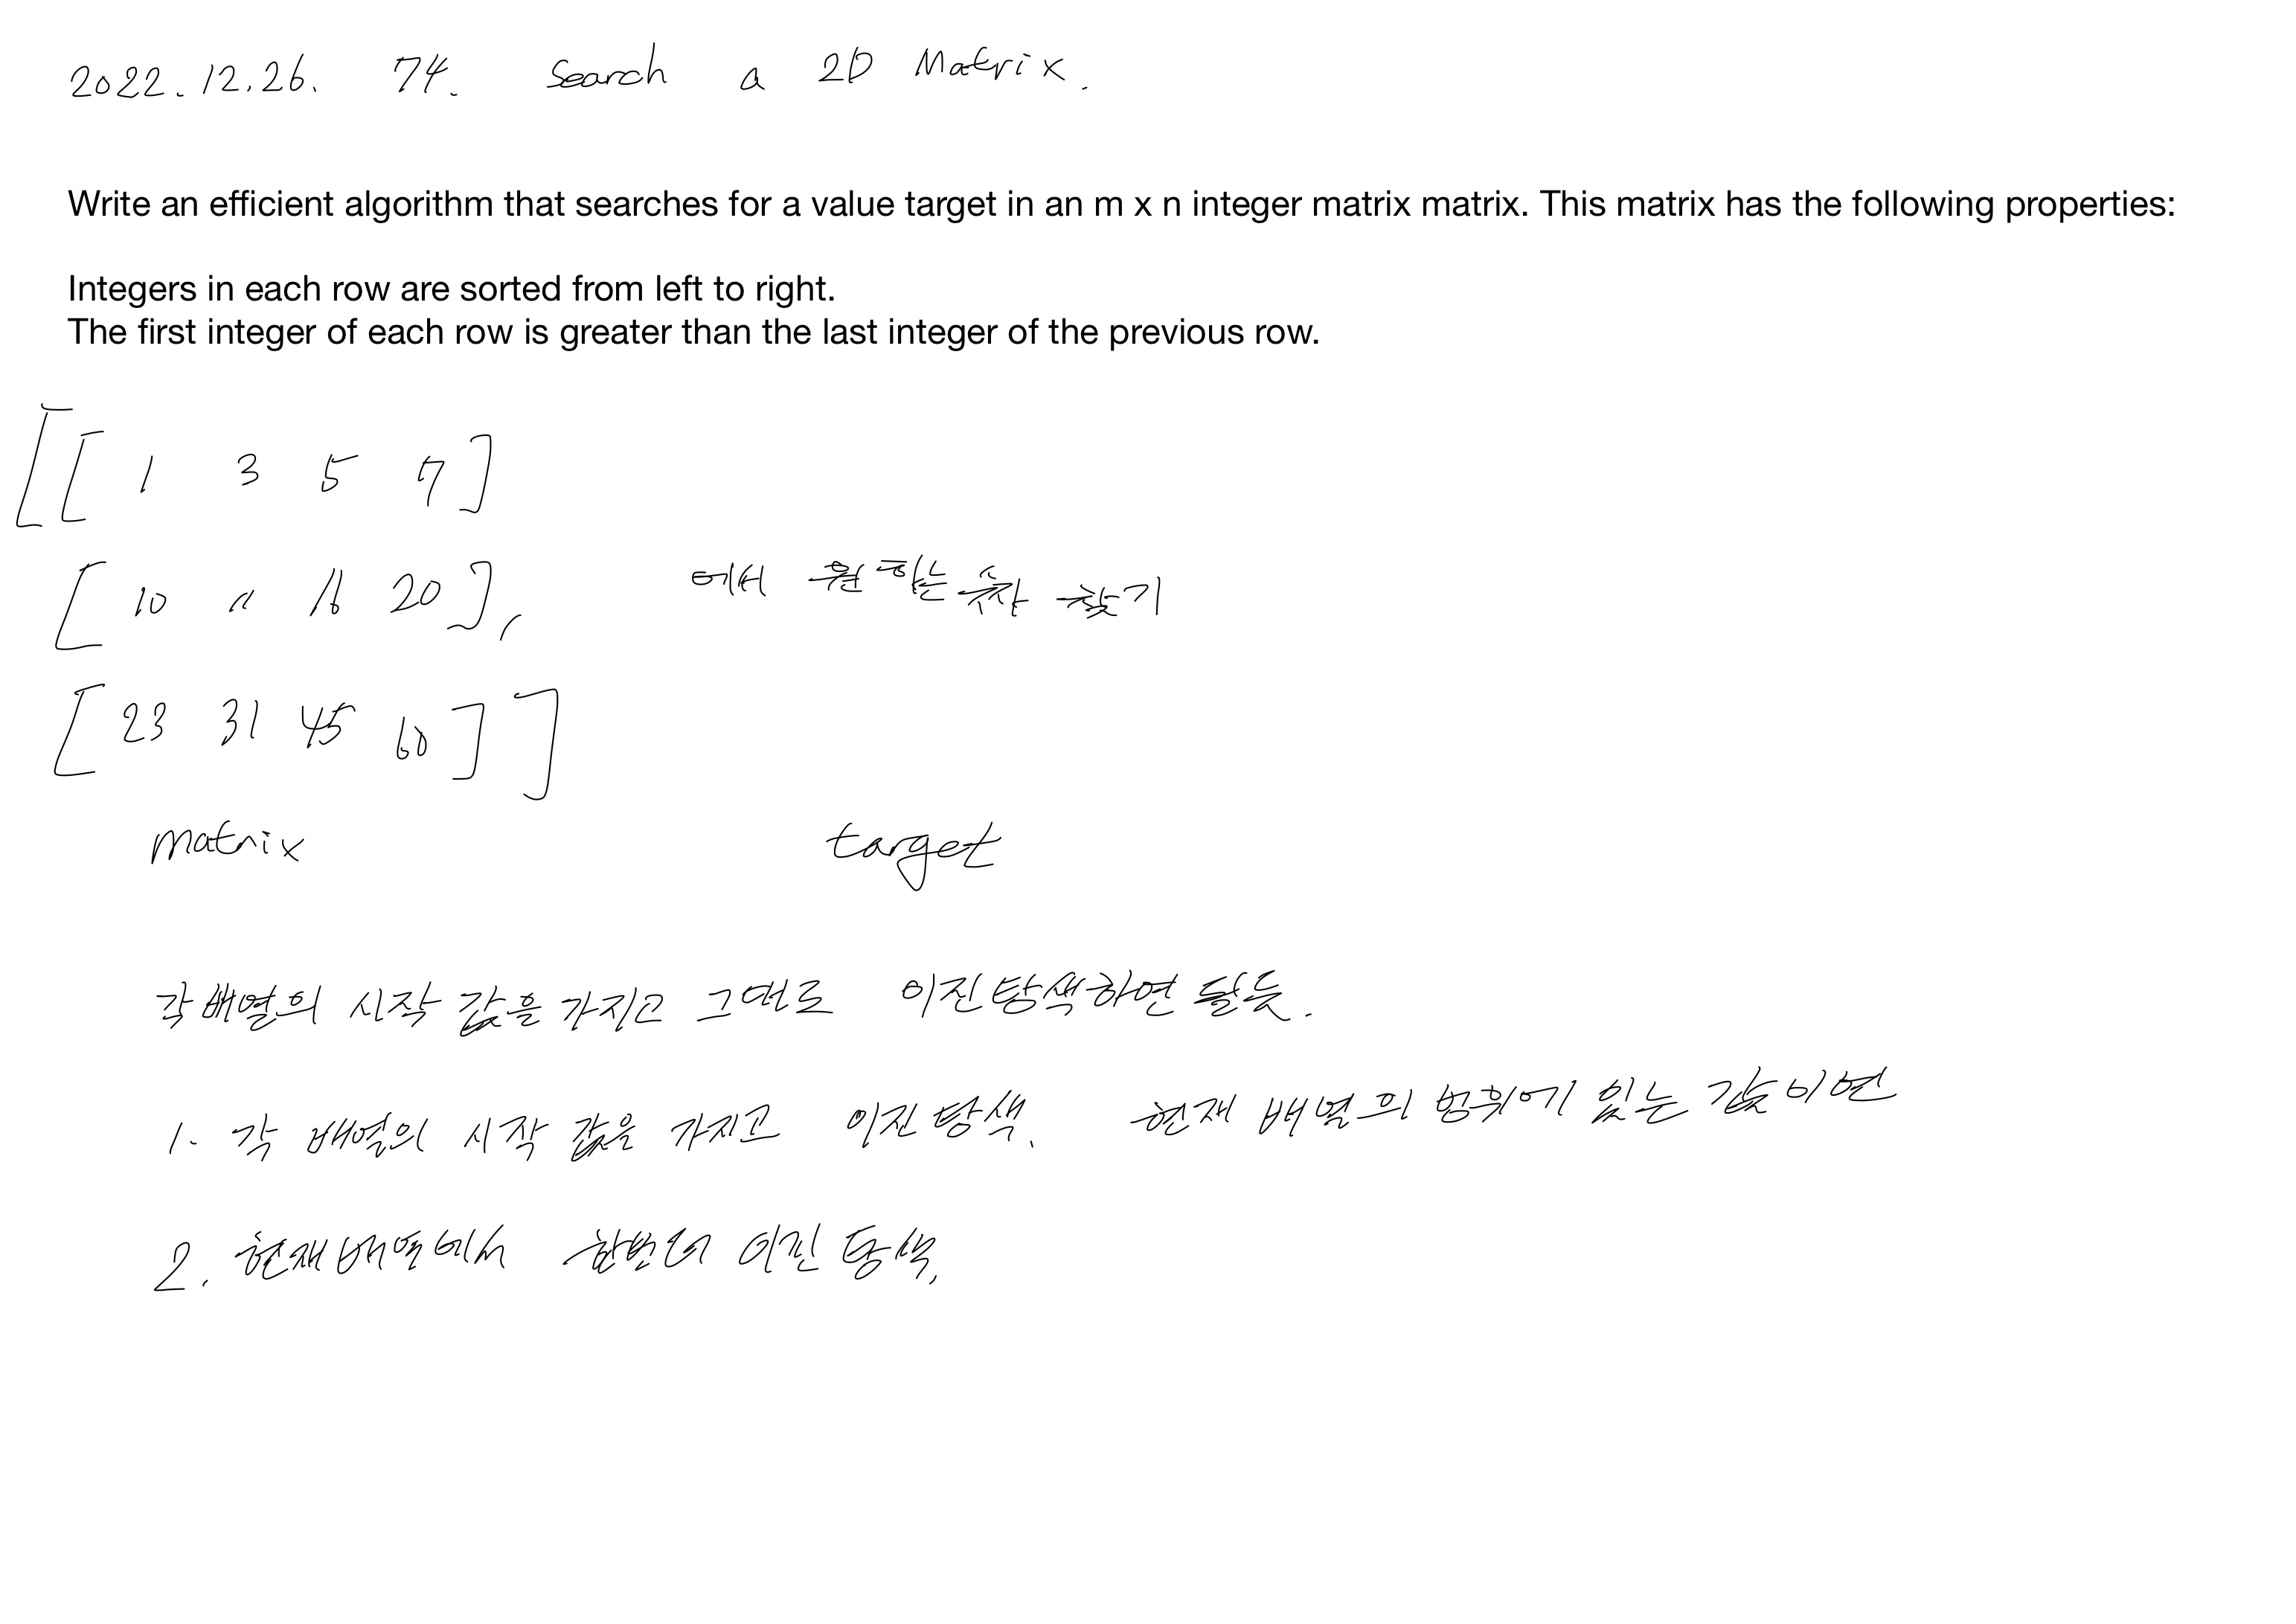 2022.12.26. 74. Search a 2D Matrix.
Write an efficient algorithm that searches for a value target in an m x n integer matrix matrix. This matrix has the following properties:
Integers in each row are sorted from left to right.
The first integer of each row is greater than the last integer of the previous row.
[[ 1 3 5 7 ]
[ 10 11 16 20 ], 에서 원하는 숫자 찾기
[ 23 31 45 60 ] ]
matrix target
각 배열의 시작 값을 가지고 그대로 이진탐색하면 될듯.
1. 각 배열의 시작 값을 가지고 이진탐색. 현재 배열의 범위에 있는 값이면
2. 현재 배열에서 한번더 이진탐색.